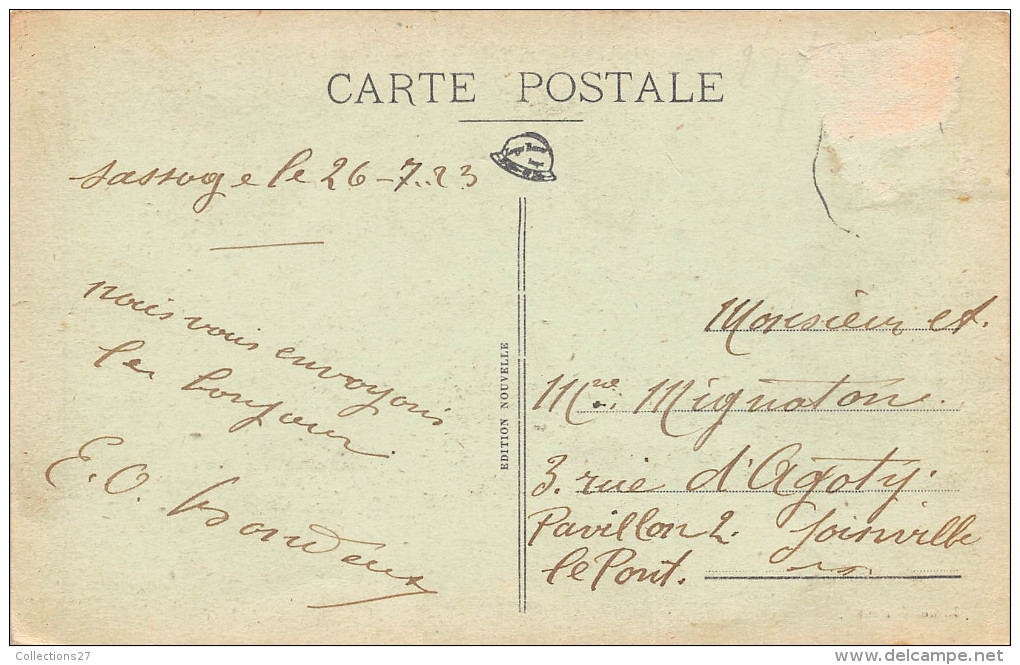 CARTE POSTALE
Sassoge le 26-7-23
nous vous envoyons
le bonjour
E.O.
EDITION NOUVELLE
Monsieur et.
Mme. Mignaton.
3. rue d'Agoty.
Pavillon 2. Joinville
le Pont.
Collections27
www.delcampe.net